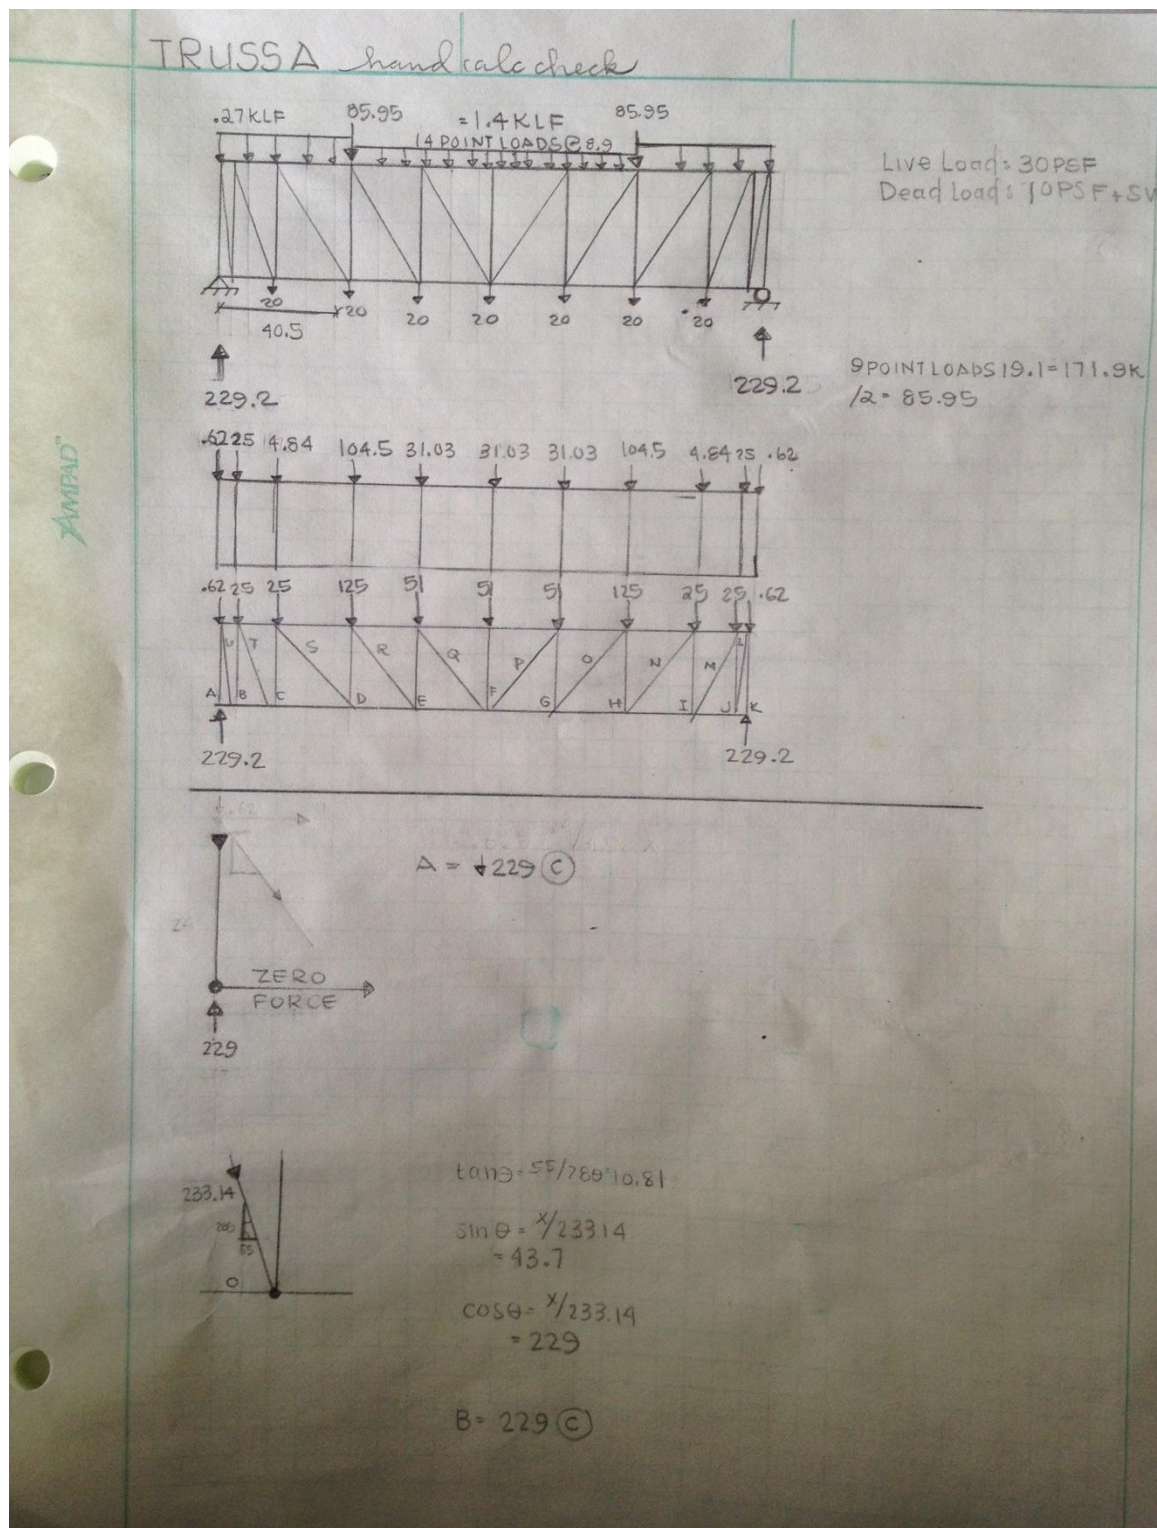 TRUSS A hand calc check
.27KLF 85.95 =1.4KLF 85.95
14 POINT LOADS@8.9
Live Load: 30PSF
Dead load: 10PSF+SW
20 20 20 20 20 20 20
40.5
229.2 229.2
9 POINT LOADS 19.1=171.9K
/2= 85.95
.62 25 4.84 104.5 31.03 31.03 31.03 104.5 4.84 25 .62
AMPAD"
.62 25 25 125 51 51 51 125 25 25 .62
U T S R Q P O N M L
A B C D E F G H I J K
229.2 229.2
.62
A = ↓229 C
ZERO
FORCE
229
tanθ=55/280 10.81
233.14
sin θ= x/233.14
280
55
= 43.7
0
cosθ= x/233.14
= 229
B= 229 C